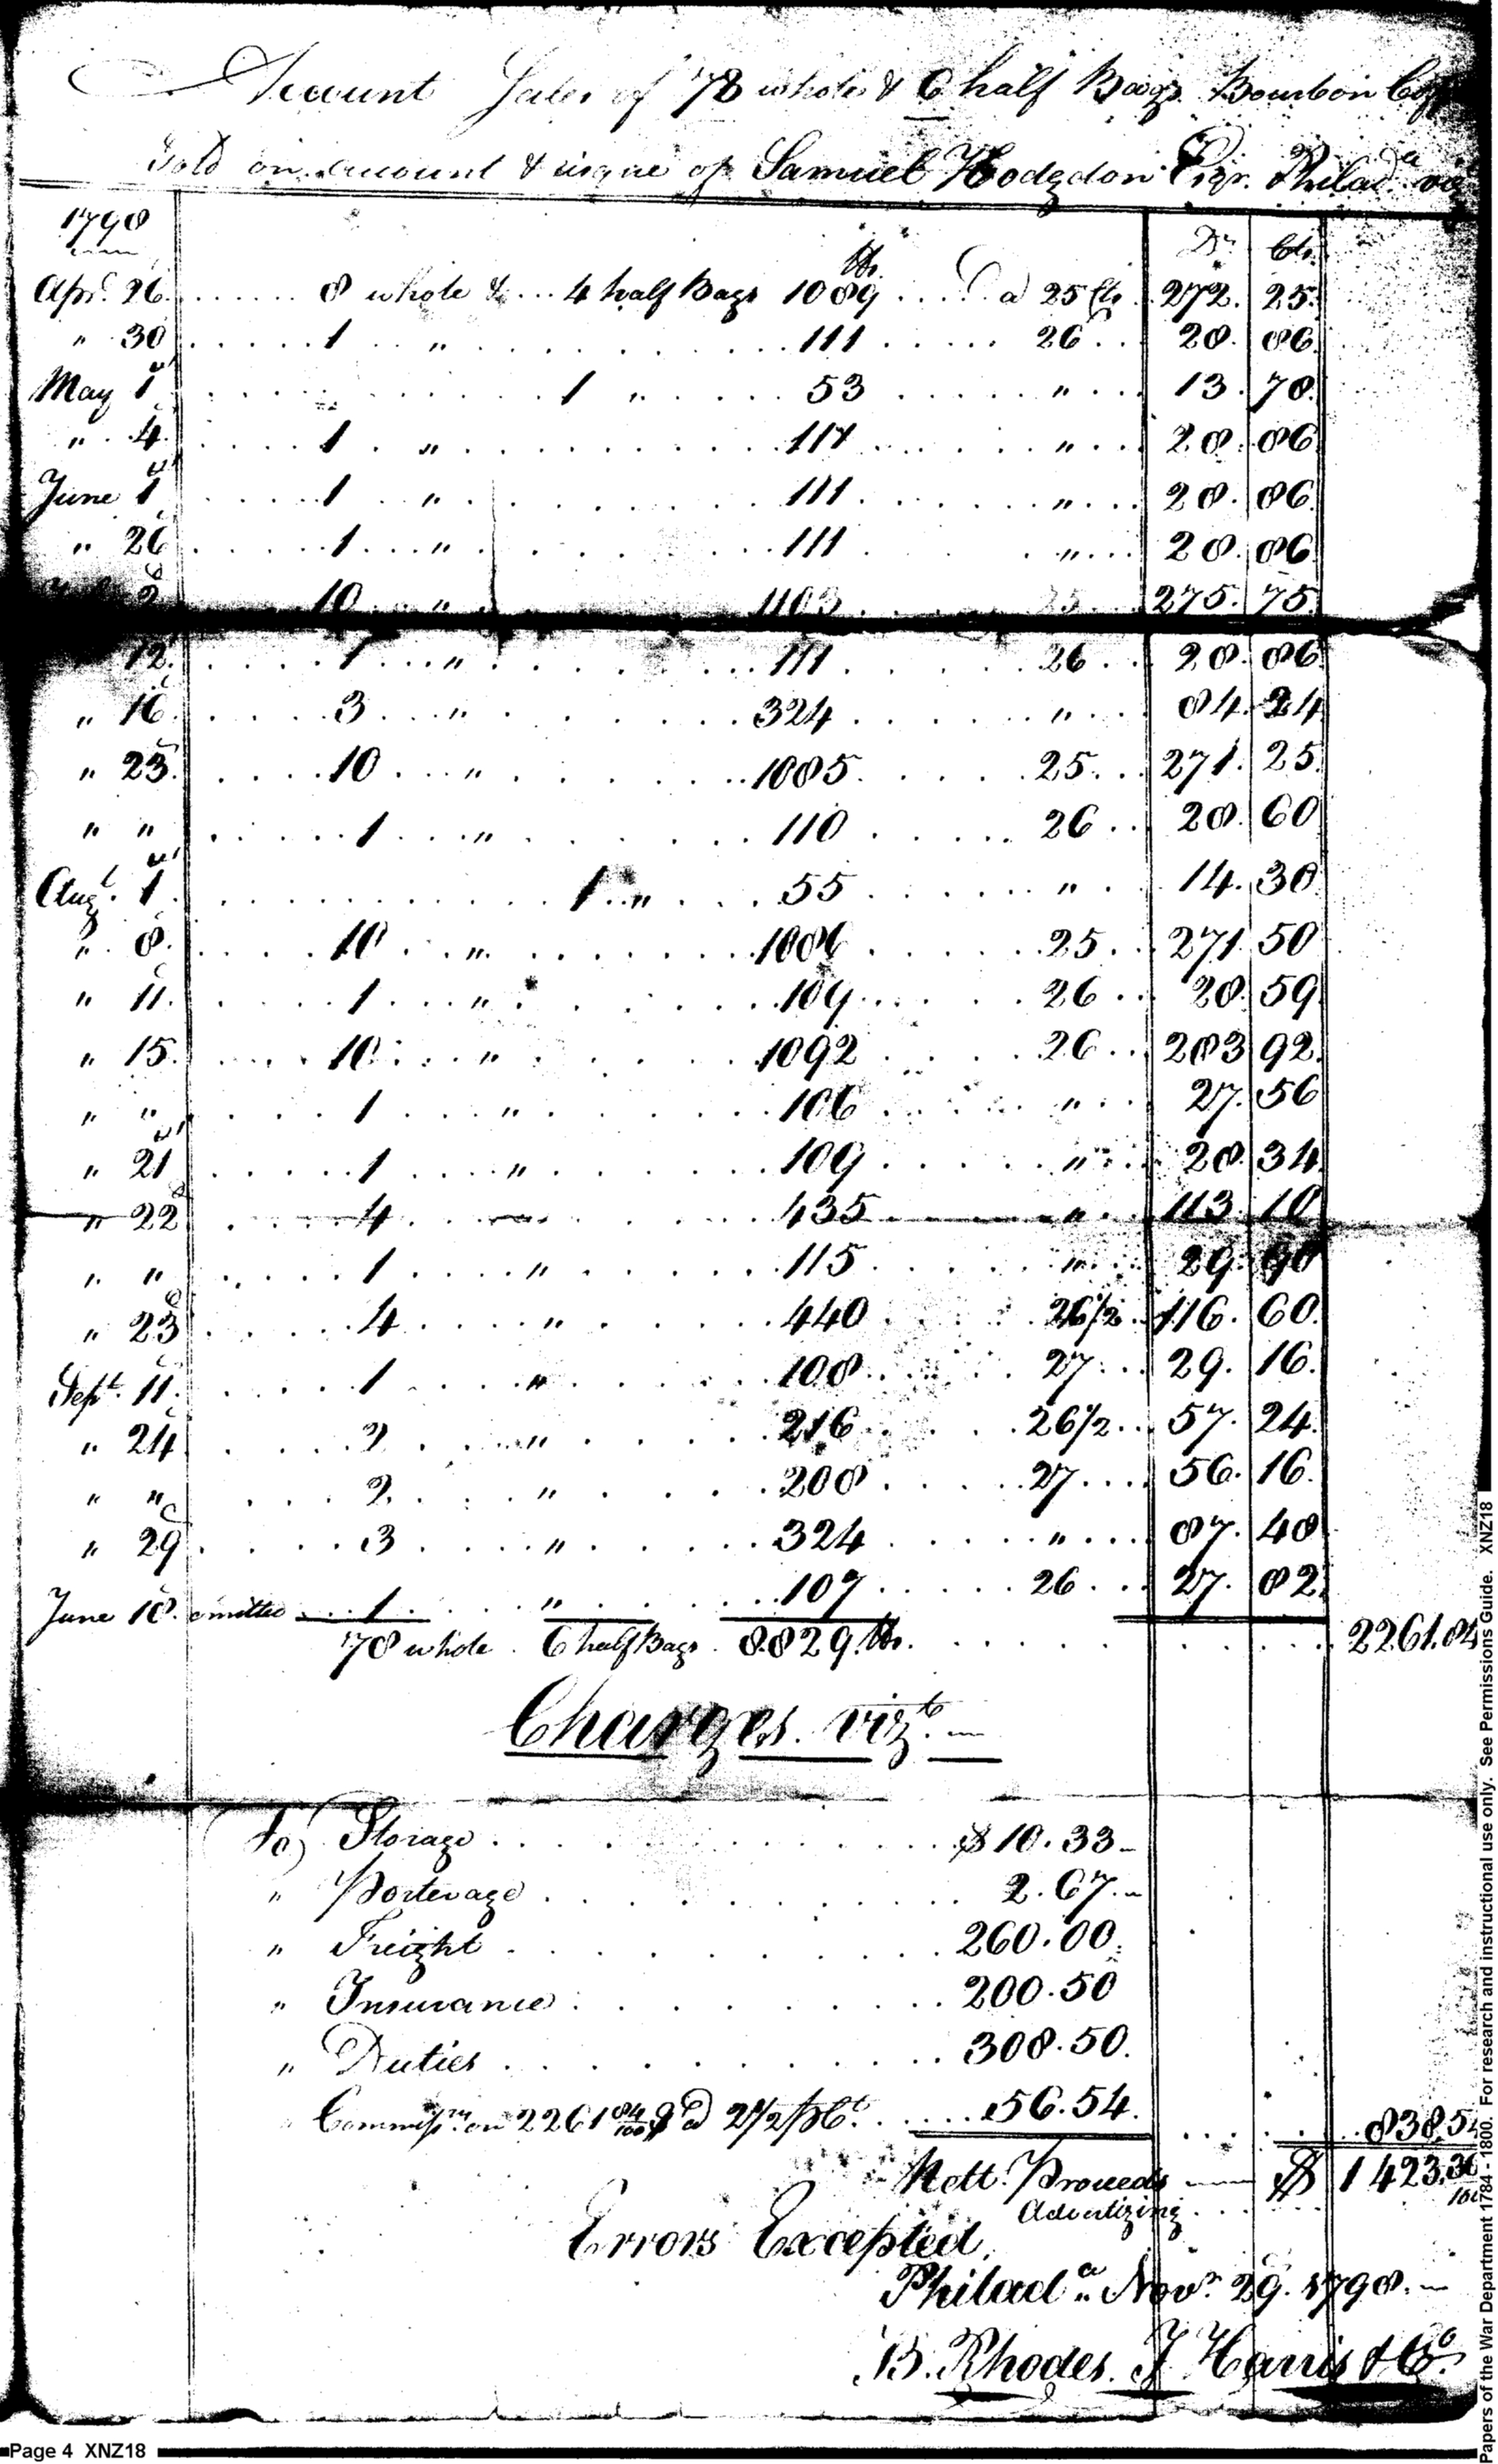 Account Sales of 78 whole & 6 half Bags Bourbon
Sold on account & risque of Samuel Hodgdon Esqr. Philada. viz
1798
lbs. Drs Cts.
Apr. 26. 8 whole & 4 half Bags 1089 a 25 Cts 272. 25.
" 30 1 " 111 26 28. 86.
May 1st 1 " 53 " 13. 78.
" 4. 1 " 111 " 28. 86
June 1st 1 " 111 " 28. 86
" 26 1 " 111 " 28. 86
2d 10 " 1103 25 275. 75
12. 1 " 111 26 28. 86
" 16. 3 " 324 " 84. 24
" 23. 10 " 1085 25 271. 25
" " 1 " 110 26 28. 60
Augt. 1st 1 " 55 " 14. 30
" 8. 10 " 1086 25 271 50
" 11. 1 " 109 26 28. 59
" 15. 10 " 1092 26 283 92.
" " 1 " 106 " 27. 56
" 21st 1 " 109 " 28. 34
" 22d 4 " 435 " 113. 10
" " 1 " 115 " 29. 90
" 23d 4 " 440 26 1/2 116. 60.
Sept. 11. 1 " 108 27 29. 16.
" 24 2 " 216 26 1/2 57. 24.
" " 2 " 208 27 56. 16.
" 29 3 " 324 " 87. 48
June 18. omitted 1 " 107 26 27. 82.
78 whole 6 half Bags 8829 lbs. 2261.84
Charges. vizt.
To Storage $10.33
" Porterage 2.67
" Freight 260.00
" Insurance 200.50
" Duties 308.50.
Commissn. on 2261 84/100 $ @ 2 1/2 pCt. 56.54. 838.54
Nett. Proceeds $ 1423.30/100
Advertizing
Errors Excepted,
Philada. Novr. 29. 1798.
B. Rhodes. J Harris & Co.
Page 4 XNZ18
Papers of the War Department 1784 - 1800. For research and instructional use only. See Permissions Guide. XNZ18